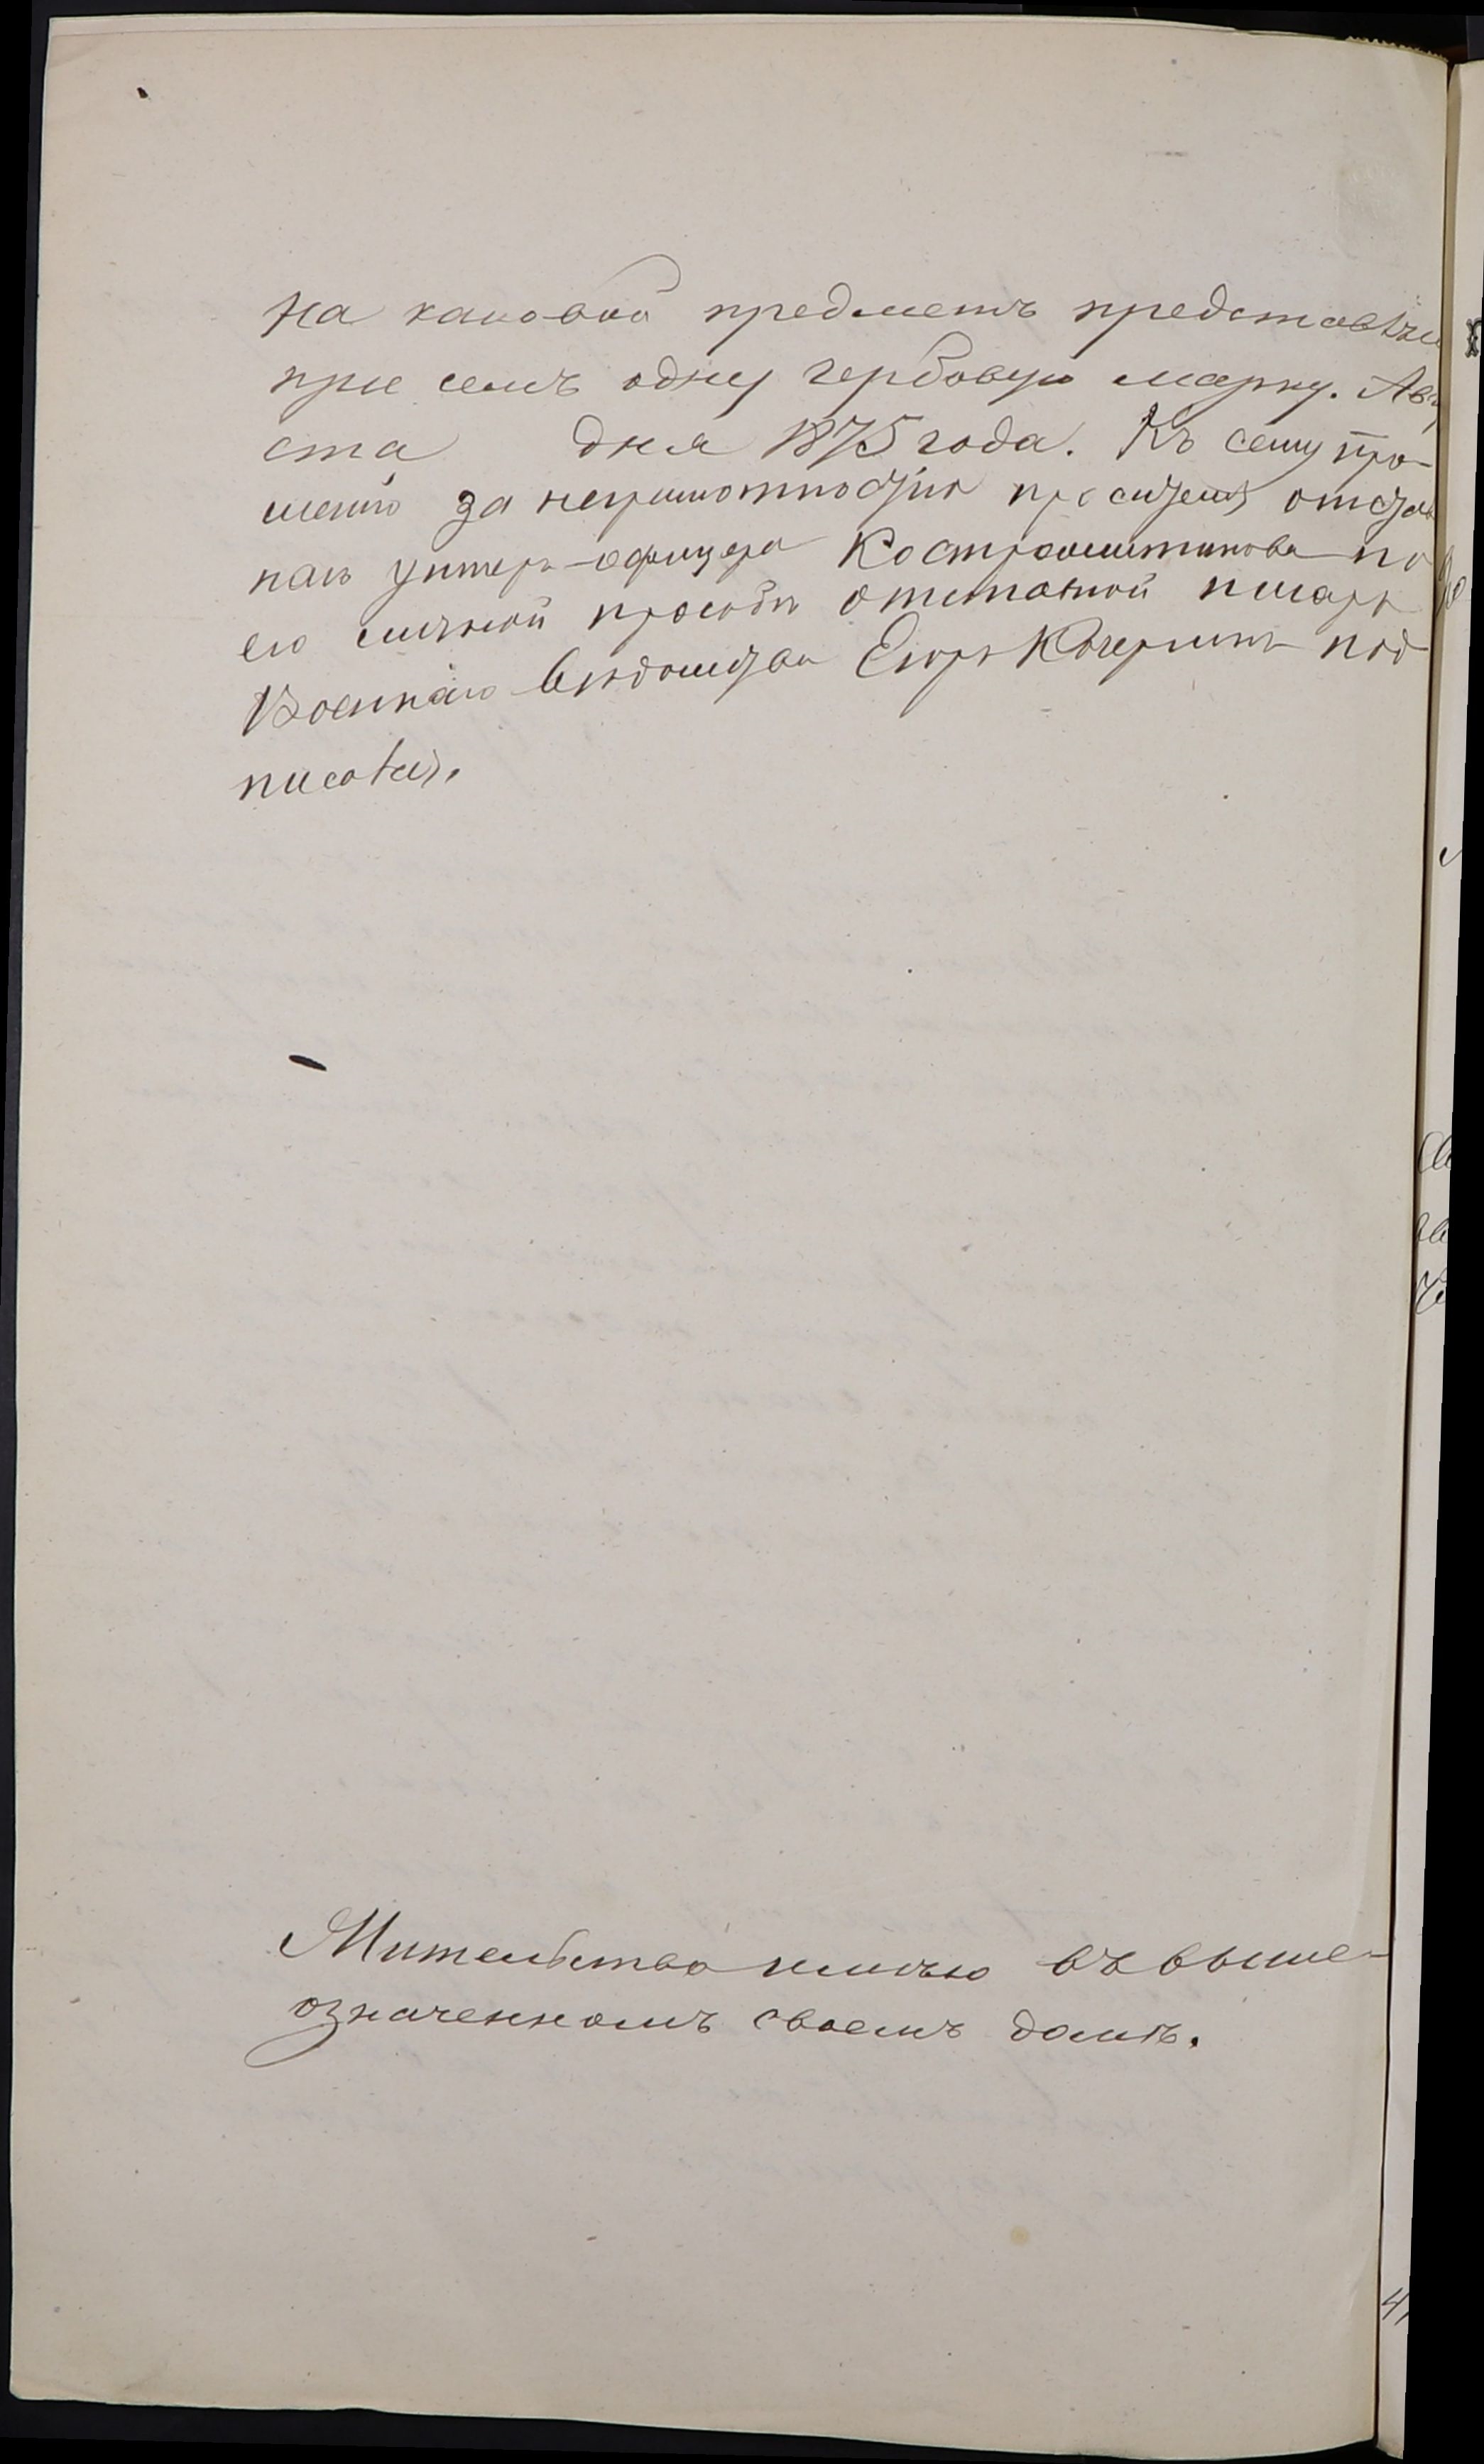 на каковой предметъ представляю
при семъ одну гербовую марку. Авгу
ста дня 1875 года. Къ сему про-
шенію за неграмотностію просителя отстав
наго унтеръ-офицера Костромитинова по
его личной просьбѣ отставной писарь
Военнаго Вѣдомства Егоръ Кочергинъ под
писался.
Жительство имѣю въ выше-
означенномъ своемъ домѣ.